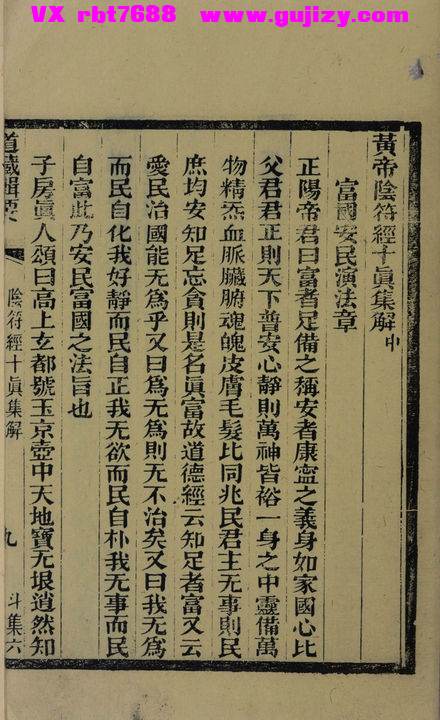 VX rbt7688 www.gujizy.com
黃帝陰符經十眞集解中
富國安民演法章
正陽帝君曰富者足備之稱安者康寧之義身如家國心比
父君君正則天下普安心靜則萬神皆裕一身之中靈備萬
物精炁血脈臟腑魂魄皮膚毛髮比同兆民君主无事則民
庶均安知足忘貪則是名眞富故道德經云知足者富又云
愛民治國能无爲乎又曰爲无爲則无不治矣又曰我无爲
而民自化我好靜而民自正我无欲而民自朴我无事而民
自富此乃安民富國之法旨也
子房眞人頌曰高上玄都號玉京壺中天地寶无垠逍然知
道藏輯要 陰符經十眞集解 九 斗集六